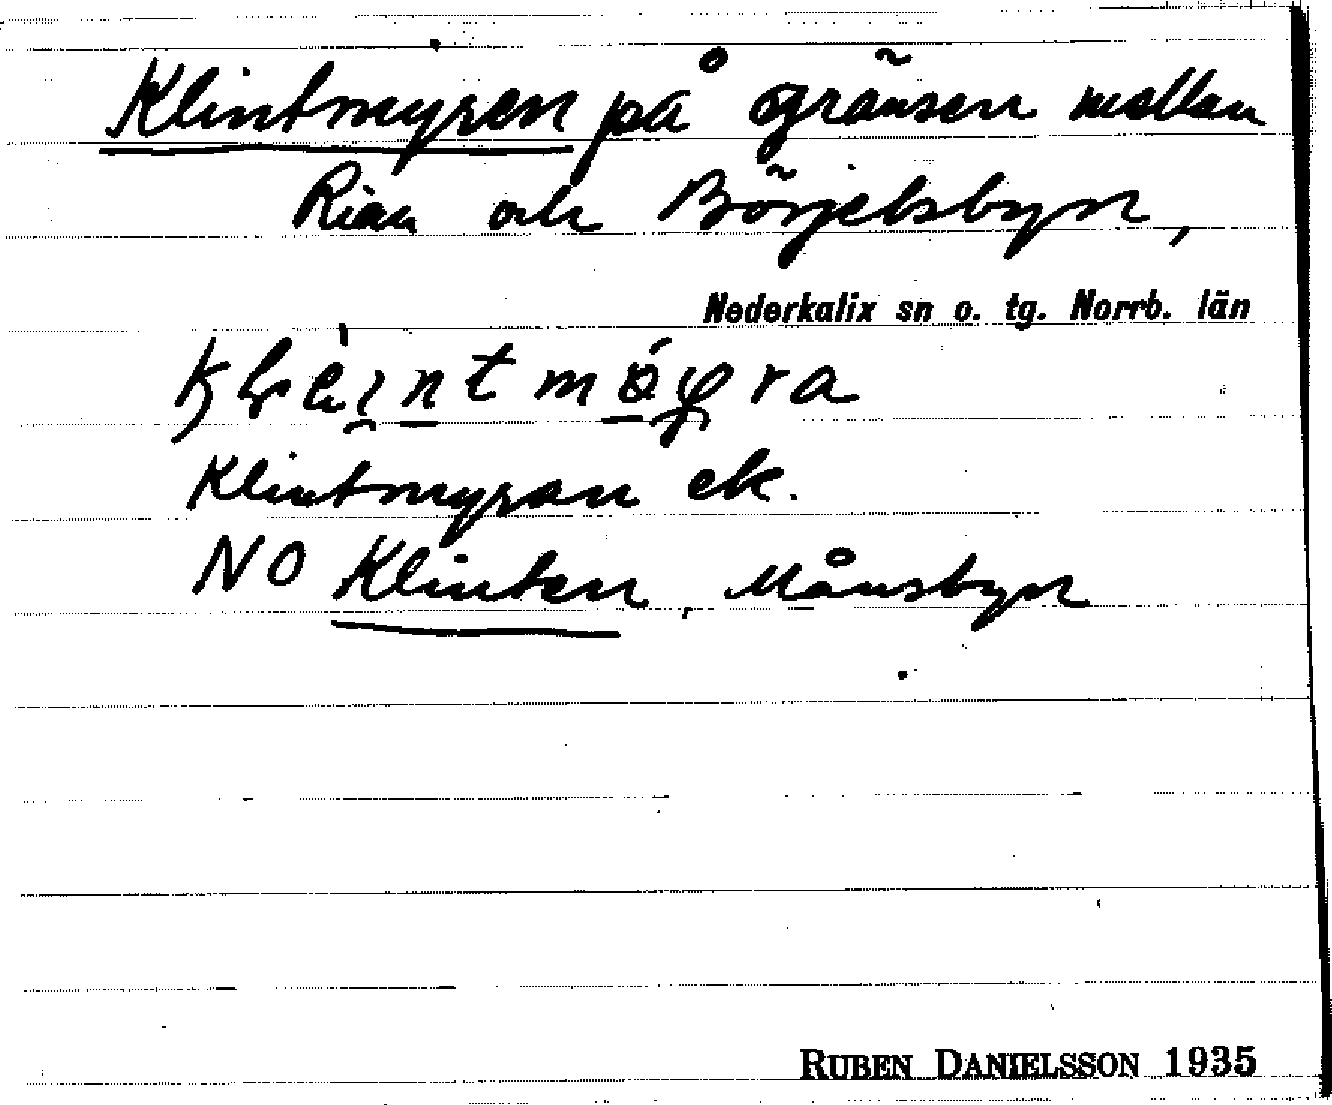 Klintmyren på gränsen mellan
Rian och Börjelsbyn,
Nederkalix sn o. tg. Norrb. län
Klintmyran ek.
NO Klinten, Månsbyn
RUBEN DANIELSSON 1935